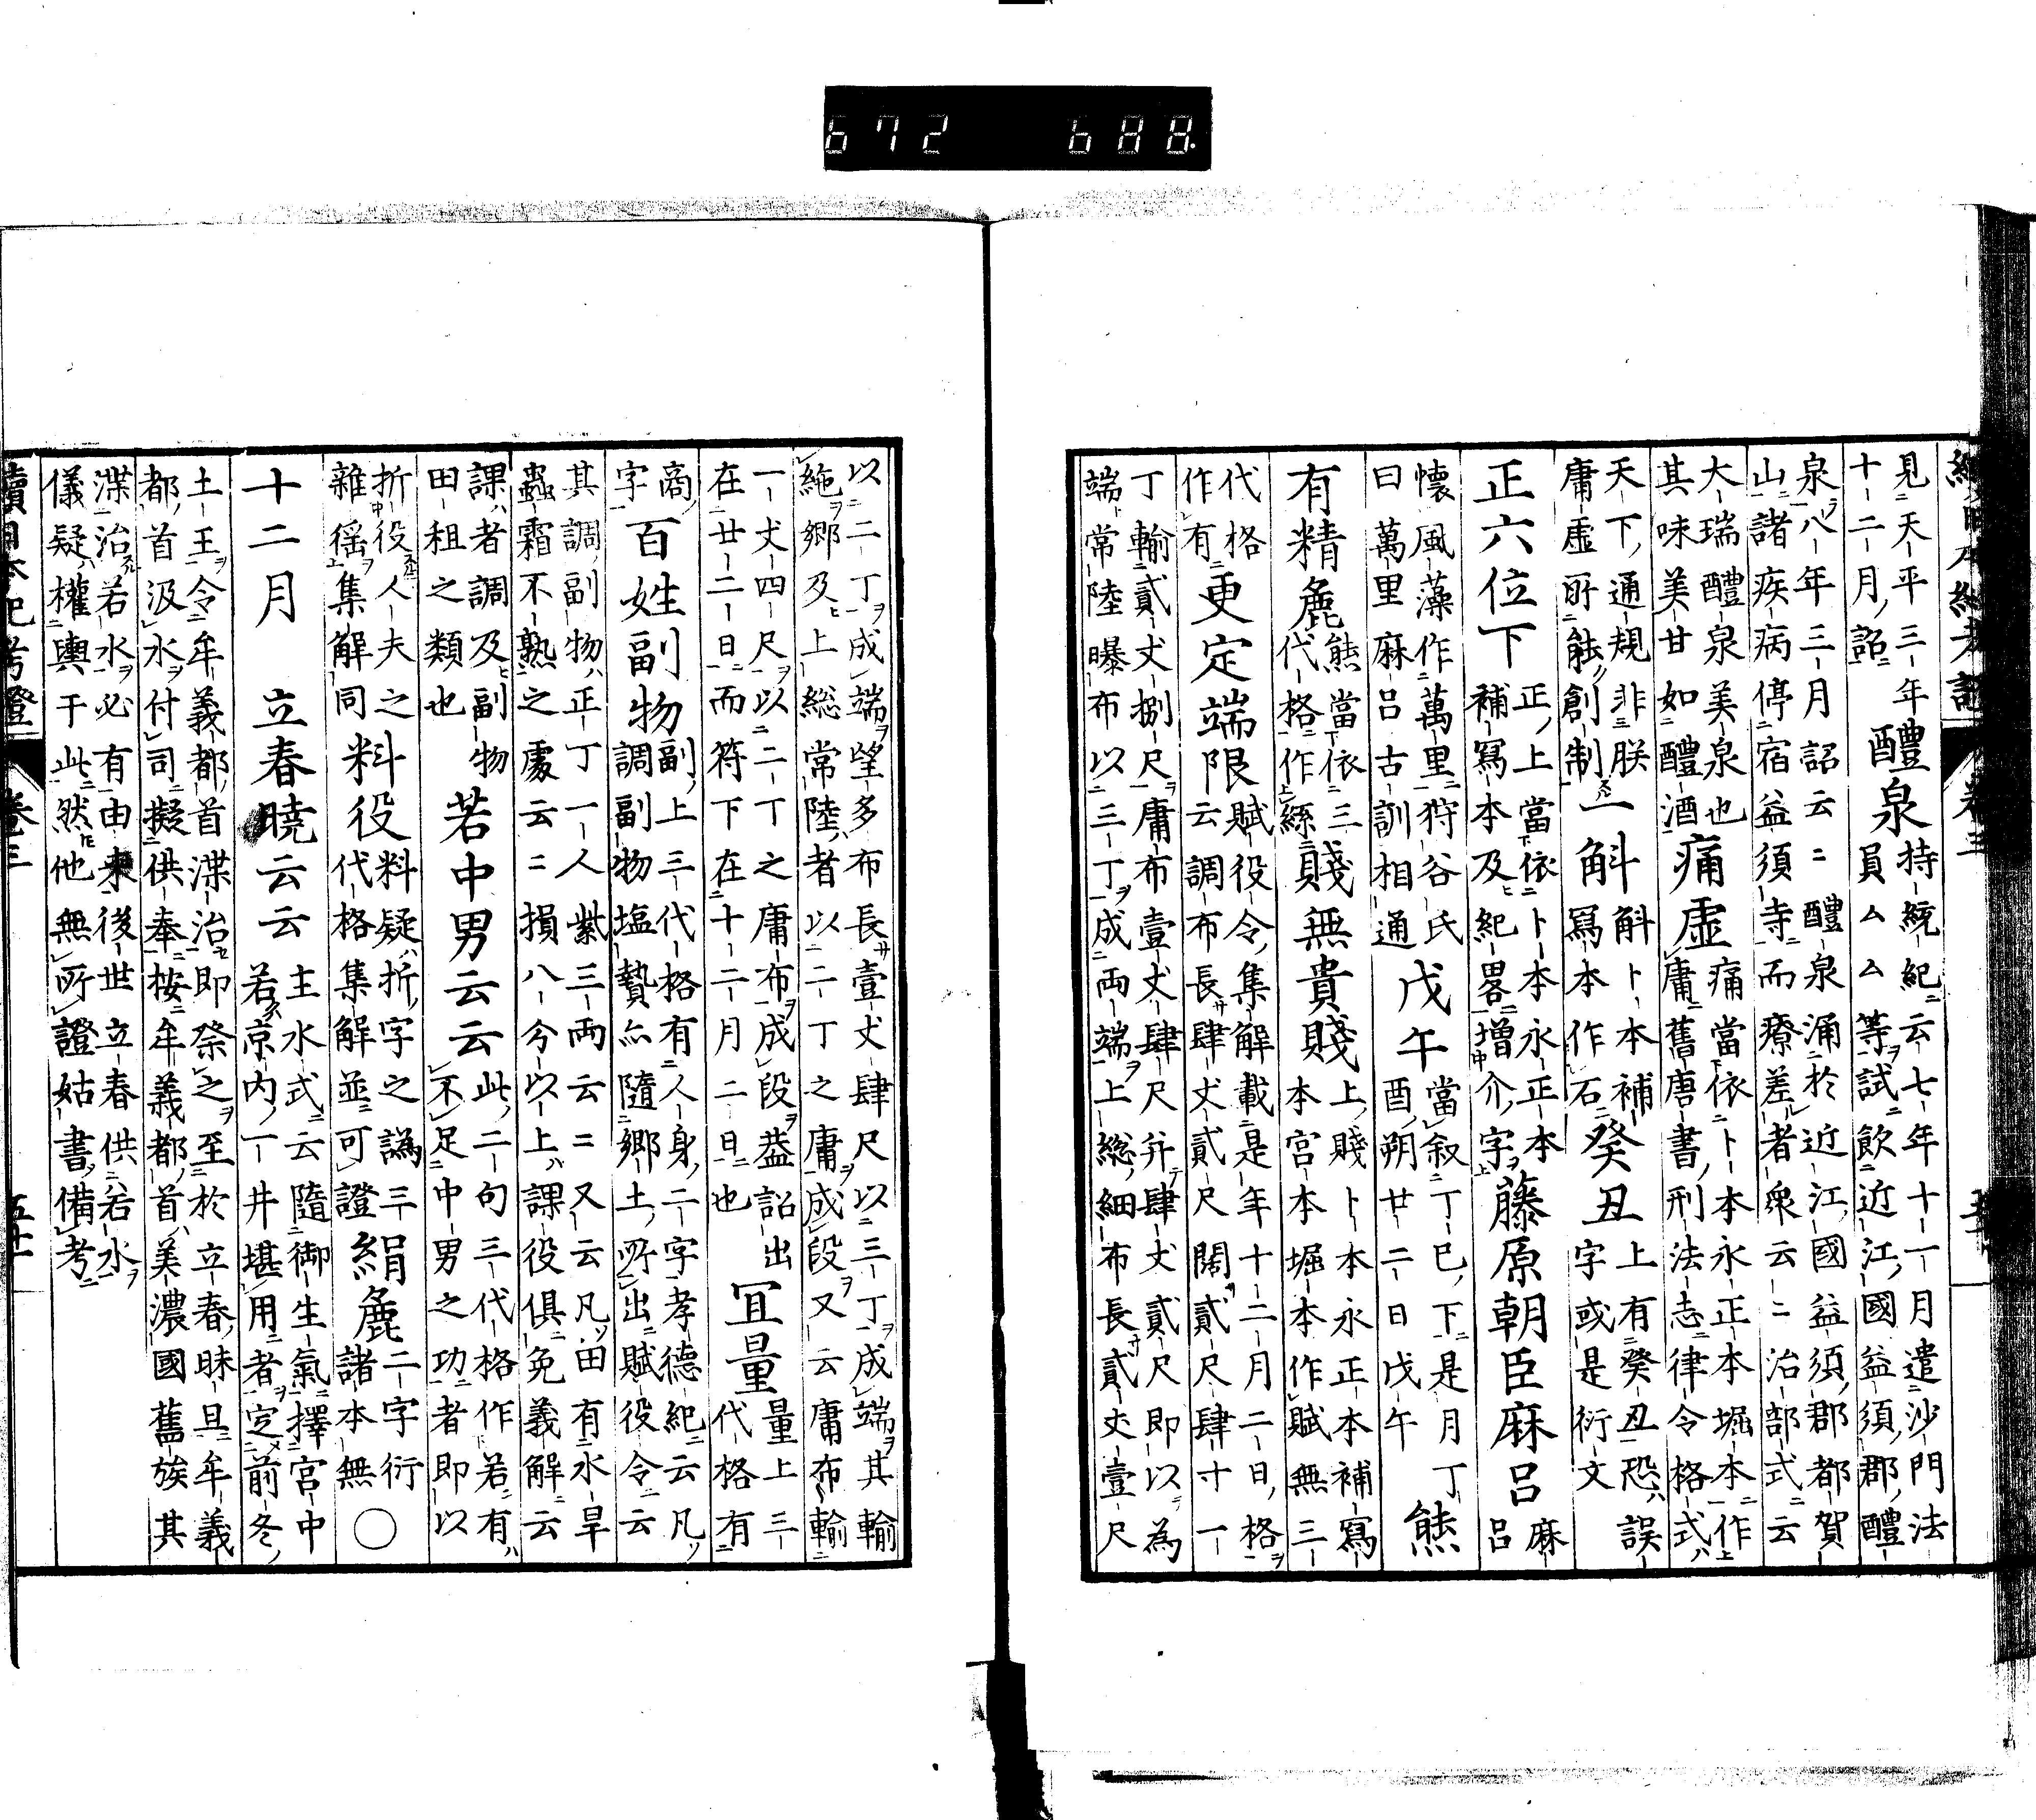 672 688.
見天平三年 醴泉 持統紀云七年十一月遣沙門法
十二月詔 員ムム等試飲近江國益須郡醴
泉八年三月詔云〻醴泉涌於近江國益須郡都賀
山諸疾病停宿益須寺而療差者衆云〻治部式云
大瑞醴泉美泉也 痛虛 痛當依卜本永正本堀本作
其味美甘如醴酒 庸舊唐書刑法志律令格式
天下通規非朕 一斛 斛卜本補 癸丑 上有癸丑恐誤
庸虛所能創制 寫本作石 字或是衍文
正六位下 正上當依卜本永正本 藤原朝臣麻呂 麻
補寫本及紀畧增介字 呂
懷風藻作萬里狩谷氏 戊午 當叙丁巳下是月丁 熊
曰萬里麻呂古訓相通 酉朔廿二日戊午
有精麁 熊當依三 賤無貴賤 上賤卜本永正本補寫
代格作絲 本宮本堀本作賦無三
代格 更定端限 賦役令集解載是年十二月二日格
作有 云調布長肆丈貳尺闊貳尺肆寸一
丁輸貳丈捌尺庸布壹丈肆尺并肆丈貳尺即以為
端常陸曝布以三丁成兩端上総細布長貳丈壹尺
以二丁成端望多布長壹丈肆尺以三丁成端其輸
絁鄉及上総常陸者以二丁之庸成段又云庸布輸
一丈四尺以二丁之庸布成段葢詔出 冝量 量上三
在廿二日而符下在十二月二日也 代格有
商 百姓副物 副上三代格有人身二字孝德紀云凡
字 調副物塩贄亦隨鄉土所出賦役令云
其調副物正丁一人紫三兩云〻又云凡田有水旱
蟲霜不熟之處云〻損八今以上課役俱免義解云
課者調及副物 若中男云云 此二句三代格作若有
田租之類也 不足中男之功者即以
折役人夫之 料役 料疑折字之譌三 絹麁 二字衍 ○
雜徭集解同 代格集解並可證 諸本無
十二月 立春曉云云 主水式云隨御生氣擇宮中
若京内一井堪用者定前冬
土王令牟義都首渫治即祭之至於立春昧旦牟義
都首汲水付司擬供奉按牟義都首美濃國舊族其
渫治若水必有由来後世立春供若水
儀疑權輿于此然他無所證姑書備考
續日本紀考證 卷三